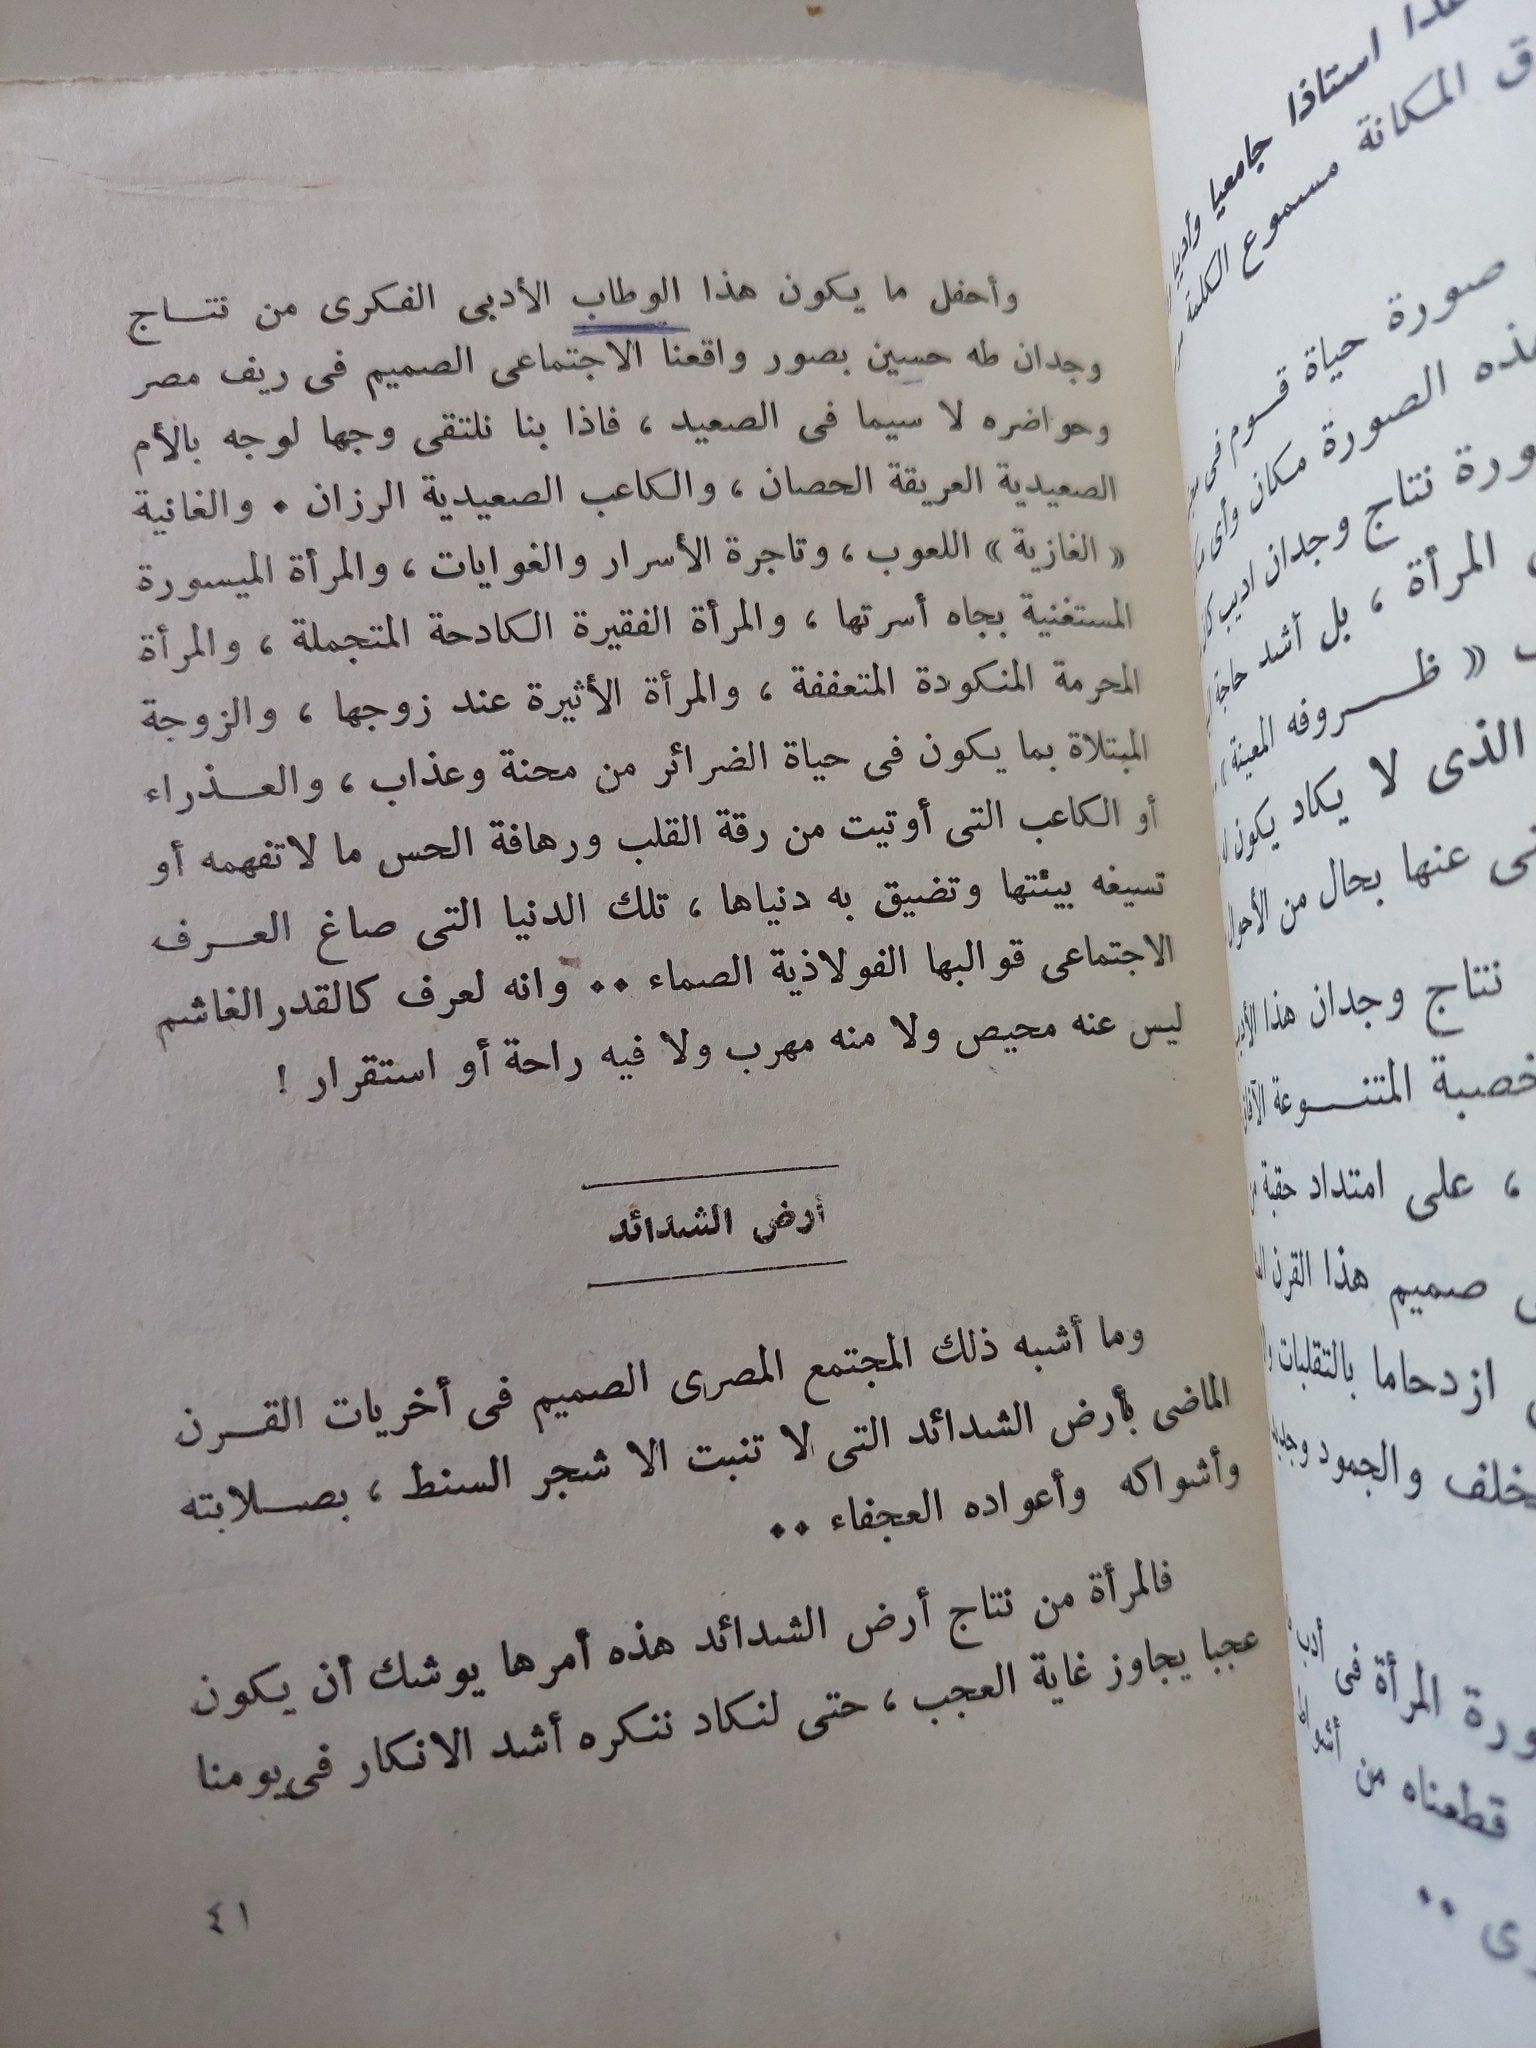 وأحفل ما يكون هذا الوطاب الأدبى الفكرى من نتاج
وجدان طه حسين بصور واقعنا الاجتماعى الصميم فى ريف مصر
وحواضره لا سيما فى الصعيد ، فاذا بنا نلتقى وجها لوجه بالأم
الصعيدية العريقة الحصان ، والكاعب الصعيدية الرزان . والغانية
« الغازية » اللعوب ، وتاجرة الأسرار والغوايات ، والمرأة الميسورة
المستغنية بجاه أسرتها ، والمرأة الفقيرة الكادحة المتجملة ، والمرأة
المحرمة المنكودة المتعففة ، والمرأة الأثيرة عند زوجها ، والزوجة
المبتلاة بما يكون فى حياة الضرائر من محنة وعذاب ، والعذراء
أو الكاعب التى أوتيت من رقة القلب ورهافة الحس ما لاتفهمه أو
تسيغه بيئتها وتضيق به دنياها ، تلك الدنيا التى صاغ العرف
الاجتماعى قوالبها الفولاذية الصماء .. وانه لعرف كالقدر الغاشم
ليس عنه محيص ولا منه مهرب ولا فيه راحة أو استقرار !
أرض الشدائد
وما أشبه ذلك المجتمع المصرى الصميم فى أخريات القرن
الماضى بأرض الشدائد التى لا تنبت الا شجر السنط ، بصلابته
وأشواكه وأعواده العجفاء ..
فالمرأة من نتاج أرض الشدائد هذه أمرها يوشك أن يكون
عجبا يجاوز غاية العجب ، حتى لنكاد ننكره أشد الانكار فى يومنا
٤١
استاذا جامعيا
المكانة مسموع الكلمة
صورة حياة قوم فى
الصورة مكان وأى
نتاج وجدان اديب
المرأة ، بل أشد حاجة
« ظروفه المعينة »
الذى لا يكاد يكون
عنها بحال من
نتاج وجدان هذا
المتنوعة
، على امتداد حقبة
صميم هذا القرن
ازدحاما بالتقلبات
والجمود
المرأة فى
قطعناه من
..